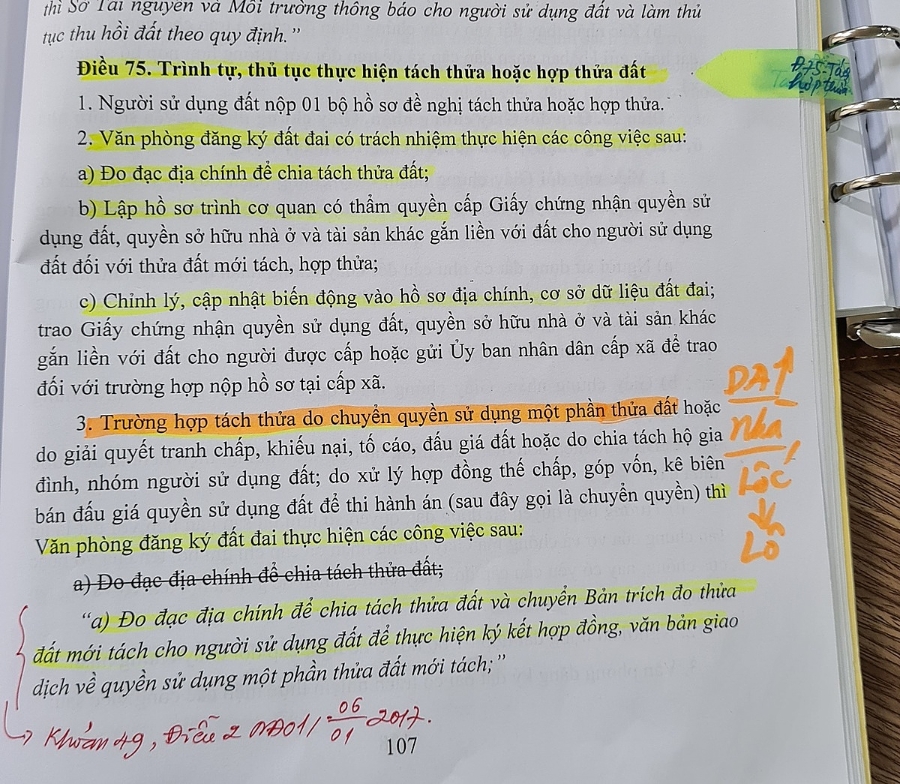 thì Sở Tài nguyên và Môi trường thông báo cho người sử dụng đất và làm thủ
tục thu hồi đất theo quy định.”
Điều 75. Trình tự, thủ tục thực hiện tách thửa hoặc hợp thửa đất
Đ75-Tác
hợp thửa
1. Người sử dụng đất nộp 01 bộ hồ sơ đề nghị tách thửa hoặc hợp thửa.
2. Văn phòng đăng ký đất đai có trách nhiệm thực hiện các công việc sau:
a) Đo đạc địa chính để chia tách thửa đất;
b) Lập hồ sơ trình cơ quan có thẩm quyền cấp Giấy chứng nhận quyền sử
dụng đất, quyền sở hữu nhà ở và tài sản khác gắn liền với đất cho người sử dụng
đất đối với thửa đất mới tách, hợp thửa;
c) Chỉnh lý, cập nhật biến động vào hồ sơ địa chính, cơ sở dữ liệu đất đai;
trao Giấy chứng nhận quyền sử dụng đất, quyền sở hữu nhà ở và tài sản khác
gắn liền với đất cho người được cấp hoặc gửi Ủy ban nhân dân cấp xã để trao
đối với trường hợp nộp hồ sơ tại cấp xã.
3. Trường hợp tách thửa do chuyển quyền sử dụng một phần thửa đất hoặc
do giải quyết tranh chấp, khiếu nại, tố cáo, đấu giá đất hoặc do chia tách hộ gia
đình, nhóm người sử dụng đất; do xử lý hợp đồng thế chấp, góp vốn, kê biên
bán đấu giá quyền sử dụng đất để thi hành án (sau đây gọi là chuyển quyền) thì
Văn phòng đăng ký đất đai thực hiện các công việc sau:
DA↑
nha
Lộc
↓
Lô
a) Đo đạc địa chính để chia tách thửa đất;
“a) Đo đạc địa chính để chia tách thửa đất và chuyển Bản trích đo thửa
đất mới tách cho người sử dụng đất để thực hiện ký kết hợp đồng, văn bản giao
dịch về quyền sử dụng một phần thửa đất mới tách;”
→ Khoản 49, Điều 2 NĐ01/06/01 2017.
107